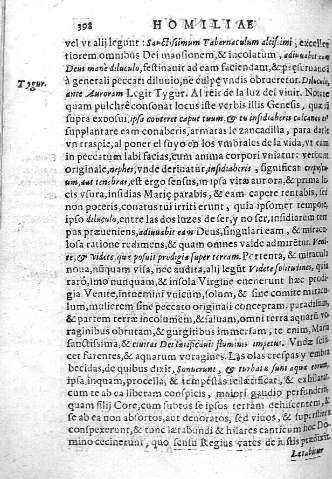 398 HOMILIAE
vel vt alij legunt: Sanctissimum Tabernaculum altissimi, excellen-
tiorem omnibus Dei mansionem, & incolatum, adiuuabit eam
Deus manè diluculo, festinauit ad eam faciendam, & præseruandã
à generali peccati diluuio, ne culpę vndis obrueretur. Diluculo,
Tygur. ante Auroram Legit Tygur. Al reir de la luz del viuir. Notate
quam pulchrè consonat locus iste verbis illis Genesis, quæ
supra exposui, ipsa conteret caput tuum, & tu insidiaberis calcaneo
supplantare eam conaberis, armaras le zancadilla, para dar
vn traspie, al poner el suyo en los vmbrales de la vida, vt eam
in peccatum labi facias, cum anima corpori vniatur: verbum
originale, nepher, vnde deriuatur, insidiaberis, significat
aut tenebras, est ergo sensus, in ipsa vitæ aurora, & prima
cis vsura, insidias Marię parabis, & eam capere tentabis, sed
non poteris, conatus tui irriti erunt, quia ipso met tempore,
ipso diluculo, entre las dos luzes de ser, y no ser, insidiarum
pas præueniens, adiuuabit eam Deus, singulari eam, & miracu-
losa ratione redimens, & quam omnes valde admiretur. Veni-
te, & videte, quæ posuit prodigia super terram. Portenta, & miracula
noua, nunquam visa, nec audita, alij legũt Videte solitudines, quia
rarò, imo nunquam, & insola Virgine euenerunt hæc prodi-
gia. Venite, intuemini vnicum, solum, & sine comite miracu-
lum, mulierem sine peccato originali conceptam, paradisum,
& partem terræ incolumem, & saluam, omni terra aquarũ vo-
raginibus obrutam, & gurgitibus immersam, te enim, Maria
sanctissima, & ciuitas Dei lætificat fluminis impetus. Vnde scili-
cet furentes, & aquarum voragines. Las olas crespas y embra-
becidas, de quibus dixit, Sonuerunt, & turbatæ sunt aquæ eorum,
ipsa, inquam, procella, & tempestas te lætificat, & exhilarat,
cum te ab ea liberam conspicis, maiori gaudio perfundens,
quam filij Core, cum subtus se ipsos terram dehiscentem, &
se ab ea non absortos, aut deuoratos, sed viuos, & superstites
conspexerunt, & tunc lætabundi & hilares canticum hoc Do-
mino cecinerunt, quo sensu Regius vates de istis
Lætabitur